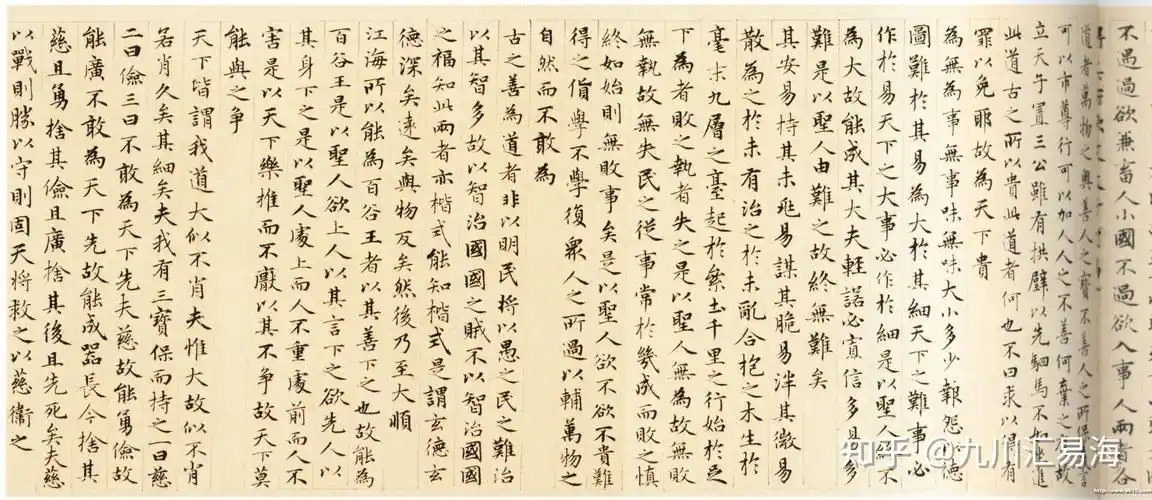 不過欲兼畜人小國不過欲入事人兩者各
道者萬物之奧善人之寶不善人之所保美言
可以市尊行可以加人人之不善何棄之有故
立天子置三公雖有拱璧以先駟馬不如坐進
此道古之所以貴此道者何也不曰求以得有
罪以免耶故為天下貴
為無為事無事味無味大小多少報怨以德
圖難於其易為大於其細天下之難事必
作於易天下之大事必作於細是以聖人終不
為大故能成其大夫輕諾必寡信多易多
難是以聖人由難之故終無難矣
其安易持其未兆易謀其脆易泮其微易
散為之於未有治之於未亂合抱之木生於
毫末九層之臺起於累土千里之行始於足
下為者敗之執者失之是以聖人無為故無敗
無執故無失民之從事常於幾成而敗之慎
終如始則無敗事矣是以聖人欲不欲不貴難
得之貨學不學復眾人之所過以輔萬物之
自然而不敢為
古之善為道者非以明民将以愚之民之難治
以其智多故以智治國國之賊不以智治國國
之福知此兩者亦楷式能知楷式是謂玄德玄
德深矣遠矣與物反矣然後乃至大順
江海所以能為百谷王者以其善下之也故能為
百谷王是以聖人欲上人以其言下之欲先人以
其身下之是以聖人處上而人不重處前而人不
害是以天下樂推而不厭以其不争故天下莫
能與之争
天下皆謂我道大似不肖夫惟大故似不肖
若肖久矣其細矣夫我有三寶保而持之一曰慈
二曰儉三曰不敢為天下先夫慈故能勇儉故
能廣不敢為天下先故能成器長今捨其
慈且勇捨其儉且廣捨其後且先死矣夫慈
以戰則勝以守則固天将救之以慈衛之
知乎 @九川汇易海